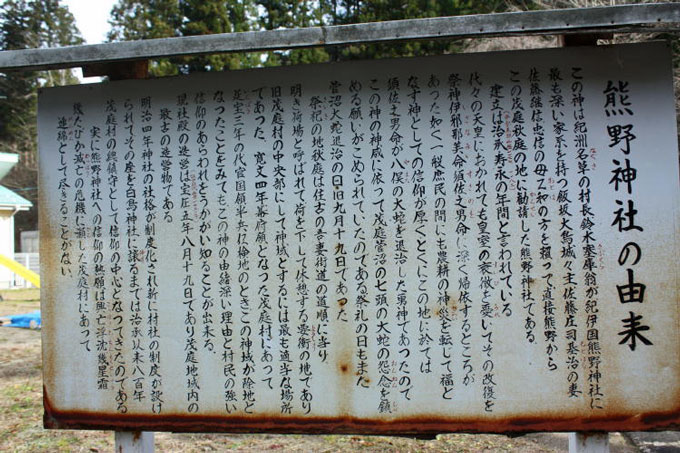 熊野神社の由来
この神は紀洲名草の村長鈴木基庫翁が紀伊国熊野神社に
最も深い家系を持つ飯坂大鳥城々主佐藤庄司基治の妻
佐藤継信忠信の母乙和の方を獲って直接熊野から
この茂庭秋庭の地に勧請した熊野神社である。
建立は治承寿永の年間と言われている
代々の天皇におかれても皇室の衰微を憂いてその改復を
祭神伊邪那美命須佐之男命に深く帰依するところが
あった如く一般庶民の間にも農耕の神災を転じて福と
なす神としての信仰が厚くとくにこの地に於ては
須佐之男命が八俣の大蛇を退治した勇神であったので
この神の神威に依って茂庭菅沼の七頭の大蛇の怨念を鎮
める願いがこめられていたのである祭礼の日もまた
菅沼大蛇退治の日旧九月十九日であった
祭祀の地秋庭は往古の吾妻街道の道順に当り
明き荷場と呼ばれて荷を下して休憩する要衝の地であり
旧茂庭村の中央部にして神域とするには最も適当な場所
であった。寛文四年幕府領となった茂庭村にあって
延宝三年の代官国領半兵衛検地のときこの神域が除地と
なったことをみてもこの神の由緒深い理由と村民の強い
信仰のあらわれをうかがい知ることが出来る。
現社殿の造営は十五年八月十九日であり茂庭地域内の
最古の造営物である
明治四年神社の社格が制度化され新に村社の制度が設け
られてその座を白鳥神社に譲るまでは治承以来八百年
茂庭村の総鎮守として信仰の中心となってきたのである
実に熊野神社への信仰の熱願は興亡浮沈幾星霜
幾たびか滅亡の危機に頻した茂庭村にあって
連綿として尽きることがない